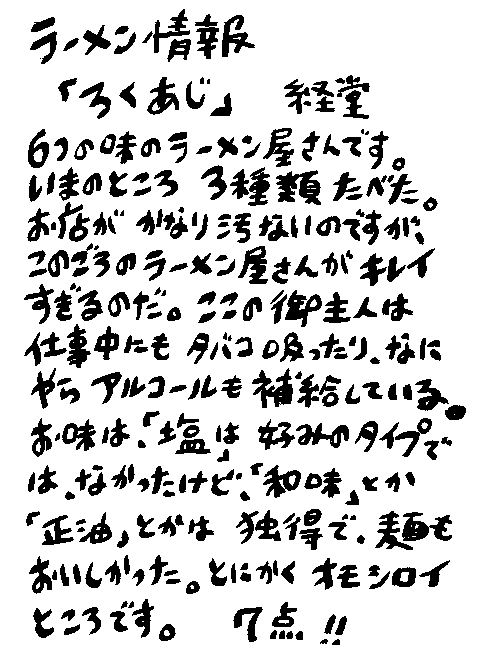 ラーメン情報
「ろくあじ」 経堂
6つの味のラーメン屋さんです。
いまのところ 3種類 たべた。
お店が かなり汚ないのですが、
このごろのラーメン屋さんがキレイ
すぎるのだ。ここの御主人は
仕事中にも タバコ吸ったり、なに
やら アルコールも 補給している。
お味は、「塩」は 好みのタイプで
は、なかったけど、「和味」とか
「正油」とかは 独得で、麺も
おいしかった。とにかく オモシロイ
ところです。 7点!!